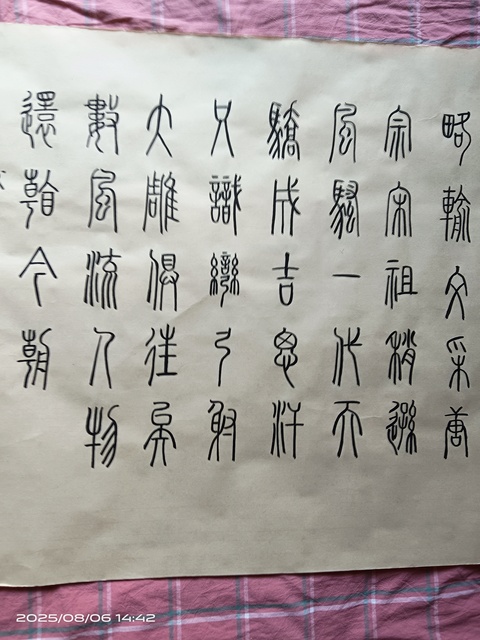 略輸文采唐
宗宋祖稍遜
風騷一代天
驕成吉思汗
只識彎弓射
大雕俱往矣
數風流人物
還看今朝
2025/08/06 14:42